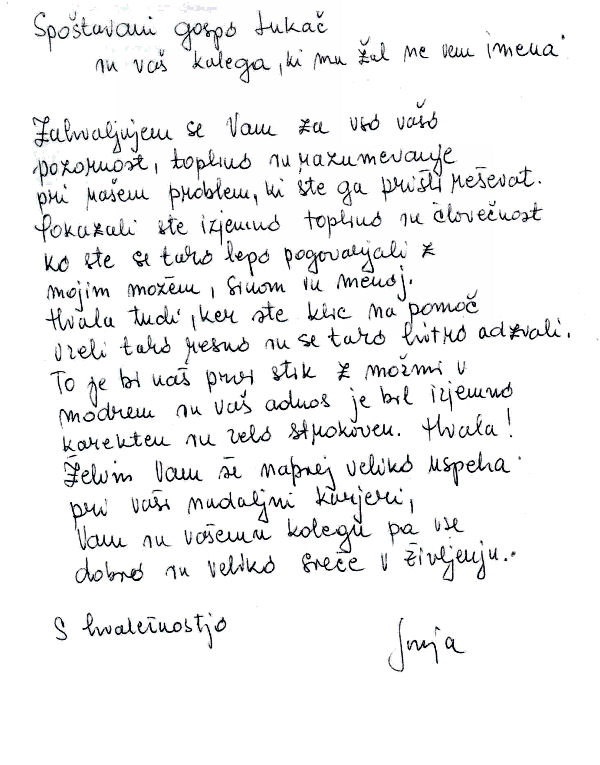 Spoštovani gospo Lukač
in vaš kolega, ki mu žal ne vem imena
Zahvaljujem se Vam za vso vašo
pozornost, toplino in razumevanje
pri našem problem, ki ste ga prišli reševat.
Pokazali ste izjemno toplino in človečnost
ko ste se tako lepo pogovarjali z
mojim možem, sinom in menoj.
Hvala tudi, ker ste klic na pomoč
vzeli tako resno in se tako hitro odzvali.
To je bi naš prvi stik z možmi v
modrem in vaš odnos je bil izjemno
korekten in zelo strokoven. Hvala!
Želim Vam še naprej veliko uspeha
pri vaši nadaljni karjeri,
Vam in vašemu kolegu pa vse
dobro in veliko sreče v življenju..
S hvaležnostjo